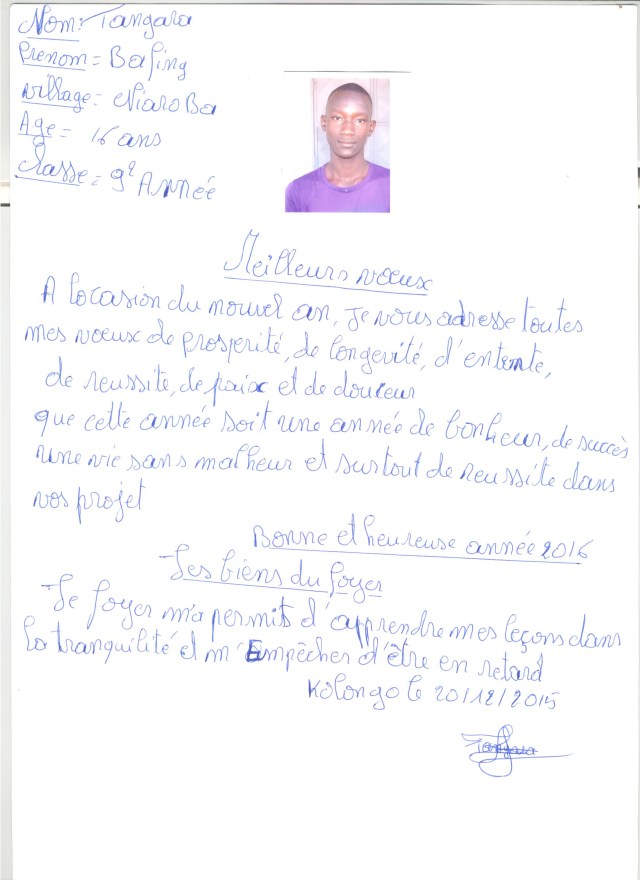 Nom: Tangara
Prenom = Bafing
village = NiaroBa
Age = 16 ans
classe = 9e Année
Meilleurs vœux
A l'ocasion du nouvel an, je vous adresse toutes
mes vœux de prosperité, de longevité, d'entente,
de reussite, de paix et de douceur
que cette année soit une année de bonheur, de succès
une vie sans malheur et surtout de reussite dans
vos projet
Bonne et heureuse année 2016
Les biens du foyer
Le foyer m'a permit d'apprendre mes leçons dans
la tranquilité et m'Empêcher d'être en retard
Kolongo le 20/12/2015
Tangara